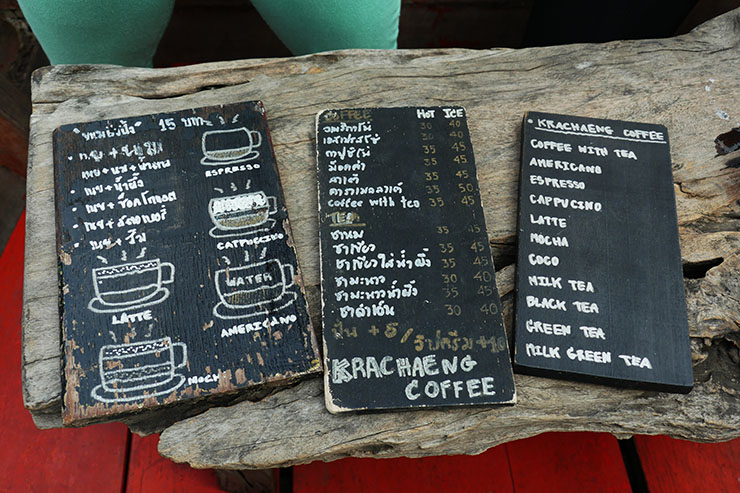 "ขนมปังปิ้ง" 15 บาท
• เนย + นม
• เนย + นม + น้ำตาล
• เนย + น้ำผึ้ง
• เนย + ช็อคโกแลต
• เนย + สตอเบอรี่
• เนย + ส้ม
ESPRESSO
CAPPUCINO
LATTE
WATER
AMERICANO
MOCHA
COFFEE HOT ICE
อเมริกาโน่ 30 40
เอสเปรสโซ่ 35 45
คาปูชิโน่ 35 45
ม็อคค่า 35 45
ลาเต้ 35 45
คาราเมลลาเต้ 35 50
coffee with tea 40 45
TEA
ชานม 35 45
ชาเขียว 35 45
ชาเขียวใส่น้ำผึ้ง 35 45
ชามะนาว 30 40
ชามะนาวน้ำผึ้ง 35 45
ชาดำเย็น 30 40
ปั่น + 5 / วิปครีม + 10
KRACHAENG
COFFEE
• KRACHAENG COFFEE
COFFEE WITH TEA
AMERICANO
ESPRESSO
CAPPUCINO
LATTE
MOCHA
COCO
MILK TEA
BLACK TEA
GREEN TEA
MILK GREEN TEA